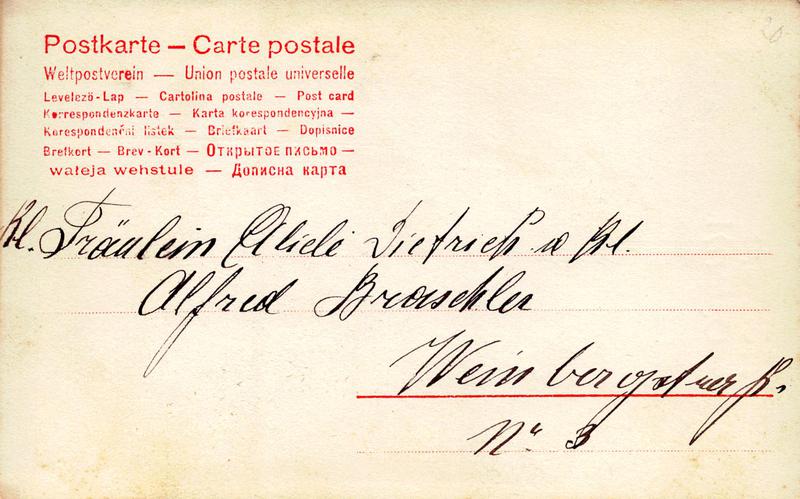 Postkarte — Carte postale
Weltpostverein — Union postale universelle
Levelező-Lap — Cartolina postale — Post card
Korrespondenzkarte — Karta korespondencyjna —
Korespondenční lístek — Briefkaart — Dopisnice
Brefkort — Brev-Kort — Открытое письмо —
wałeja wehstule — Дописна карта
Kl. Fräulein Alide Dietrich u Kl.
Alfred Braschler
Weinbergstr
No 3